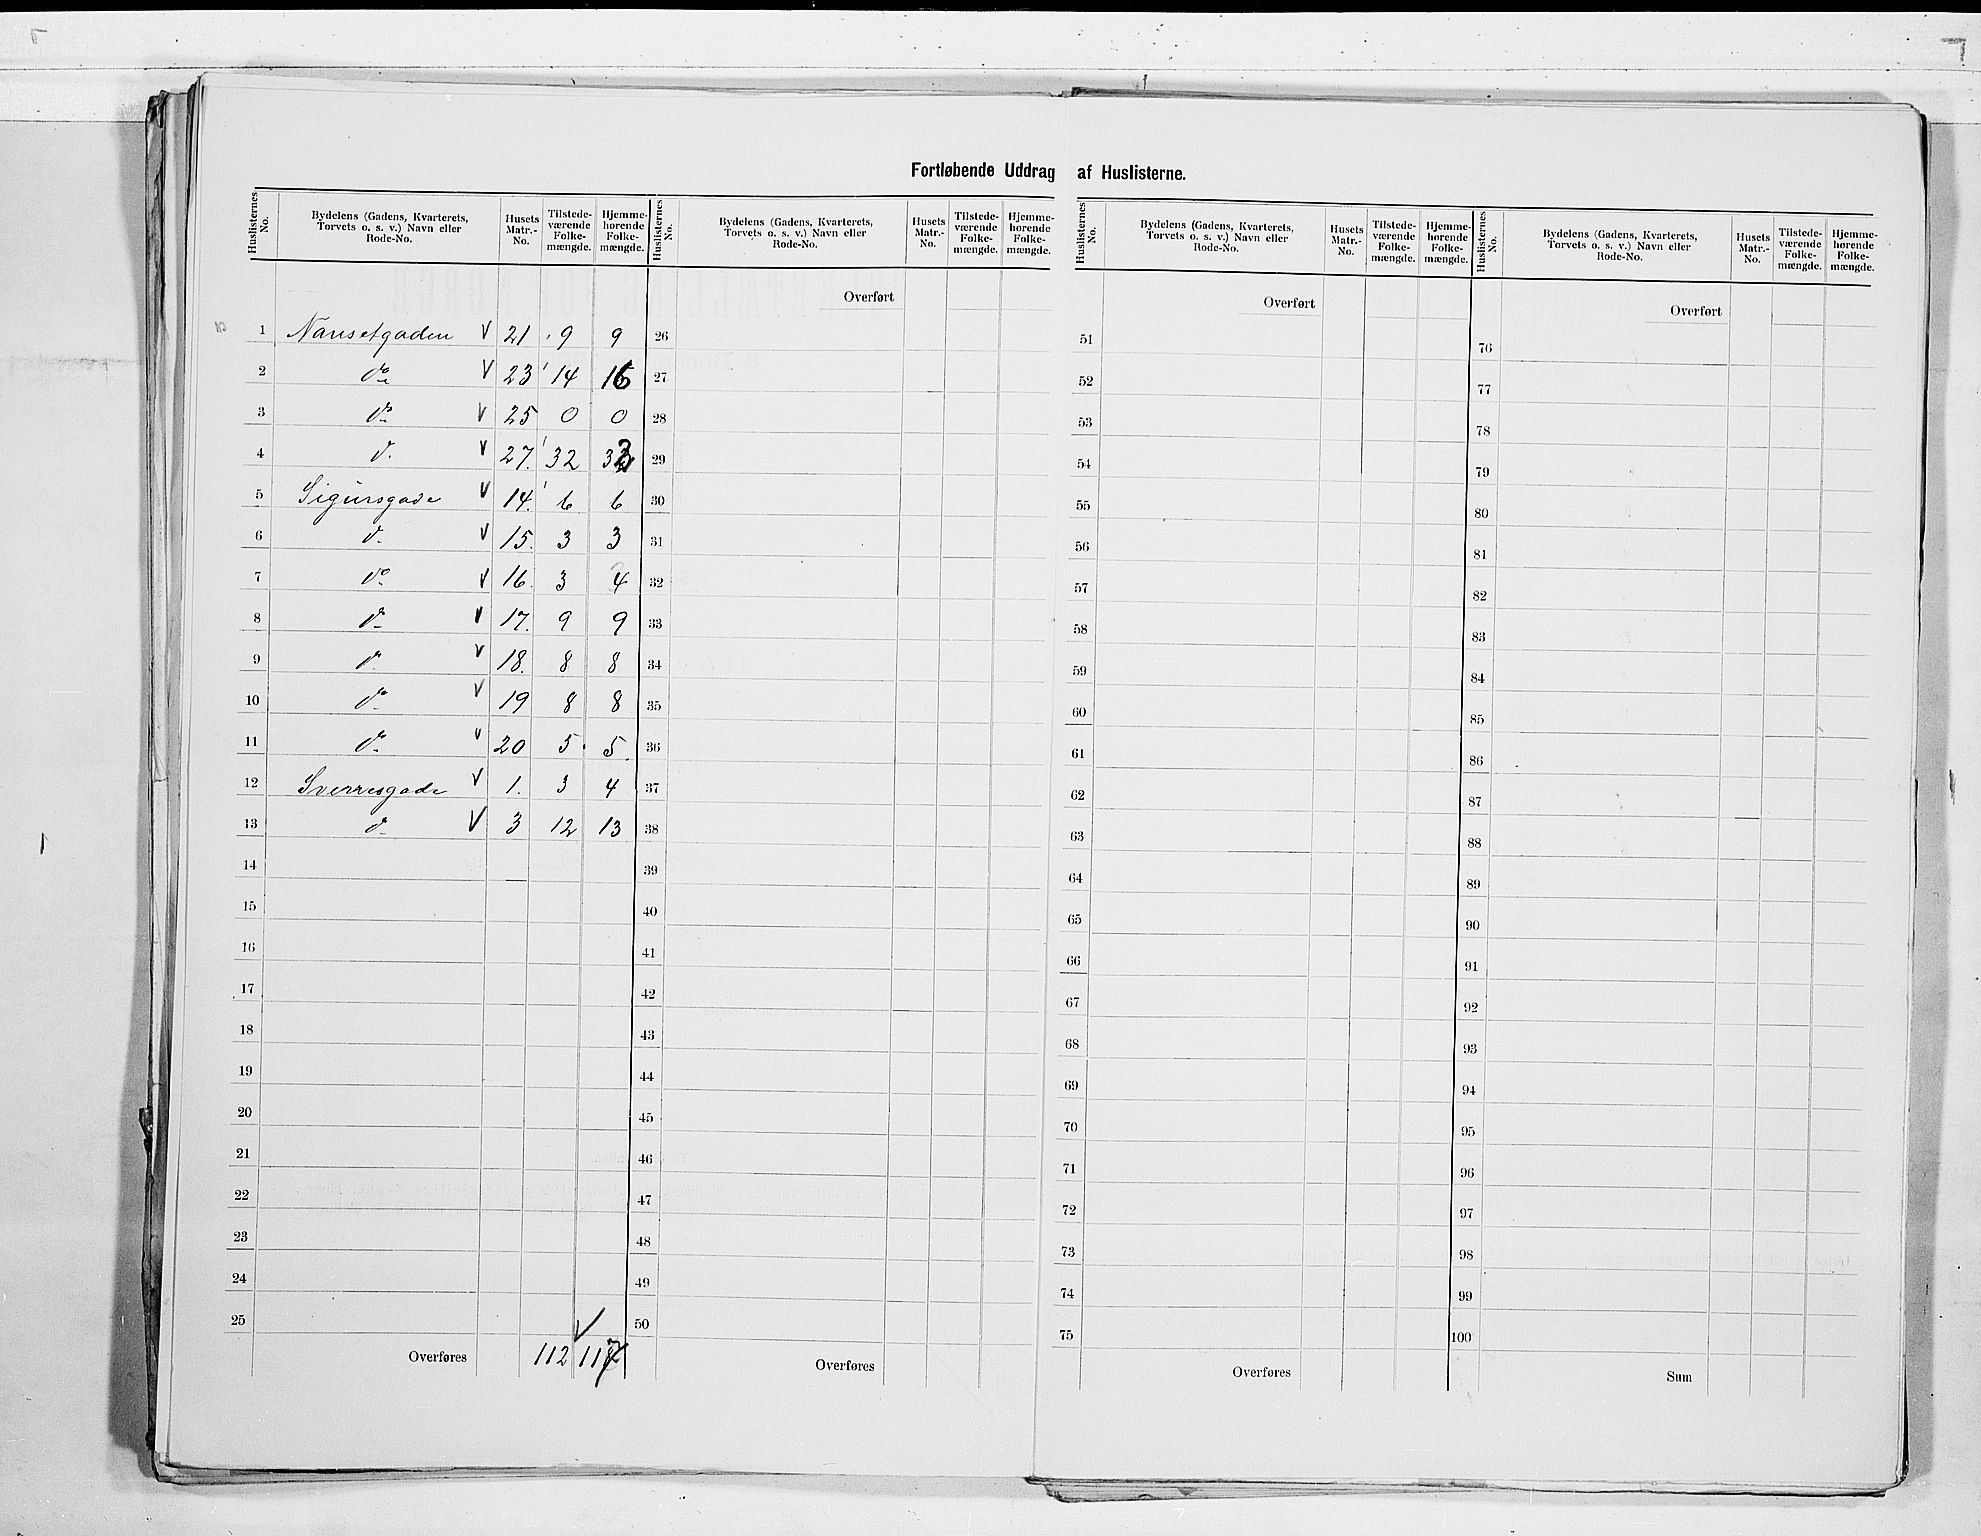 Fortløbende Uddrag af Huslisterne.
Huslisternes No. | Bydelens (Gadens, Kvarterets, Torvets o. s. v.) Navn eller Rode-No. | Husets Matr.-No. | Tilstedeværende Folkemængde. | Hjemmehørende Folkemængde. | Huslisternes No. | Bydelens (Gadens, Kvarterets, Torvets o. s. v.) Navn eller Rode-No. | Husets Matr.-No. | Tilstedeværende Folkemængde. | Hjemmehørende Folkemængde. | Huslisternes No. | Bydelens (Gadens, Kvarterets, Torvets o. s. v.) Navn eller Rode-No. | Husets Matr.-No. | Tilstedeværende Folkemængde. | Hjemmehørende Folkemængde. | Huslisternes No. | Bydelens (Gadens, Kvarterets, Torvets o. s. v.) Navn eller Rode-No. | Husets Matr.-No. | Tilstedeværende Folkemængde. | Hjemmehørende Folkemængde.
Overført | Overført | Overført
1 Nansetgaden V 21 9 9 | 26 | 51 | 76
2 do V 23 14 16 | 27 | 52 | 77
3 do V 25 0 0 | 28 | 53 | 78
4 d. V 27. 32 33 | 29 | 54 | 79
5 Sigursgade V 14. 6 6 | 30 | 55 | 80
6 d. V 15. 3 3 | 31 | 56 | 81
7 do V 16. 3 4 | 32 | 57 | 82
8 do V 17. 9 9 | 33 | 58 | 83
9 do V 18. 8 8 | 34 | 59 | 84
10 do V 19 8 8 | 35 | 60 | 85
11 do V 20 5 5 | 36 | 61 | 86
12 Sverresgade V 1. 3 4 | 37 | 62 | 87
13 d. V 3 12 13 | 38 | 63 | 88
14 | 39 | 64 | 89
15 | 40 | 65 | 90
16 | 41 | 66 | 91
17 | 42 | 67 | 92
18 | 43 | 68 | 93
19 | 44 | 69 | 94
20 | 45 | 70 | 95
21 | 46 | 71 | 96
22 | 47 | 72 | 97
23 | 48 | 73 | 98
24 | 49 | 74 | 99
25 | 50 | 75 | 100
Overføres 112 | Overføres | Overføres | Sum